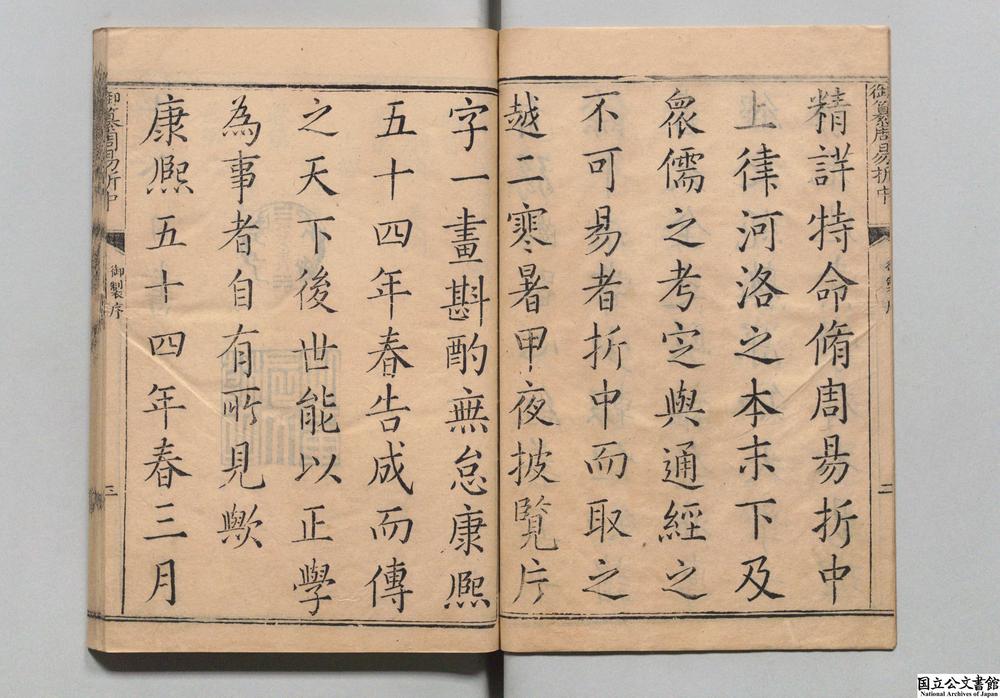 御纂周易折中
精詳特命脩周易折中
上律河洛之本末下及
衆儒之考定與通經之
不可易者折中而取之
越二寒暑甲夜披覽片
二
字一畫斟酌無怠康熙
五十四年春告成而傳
之天下後世能以正學
為事者自有所見歟
康熙五十四年春三月
御纂周易折中
御製序
三
国立公文書館
National Archives of Japan